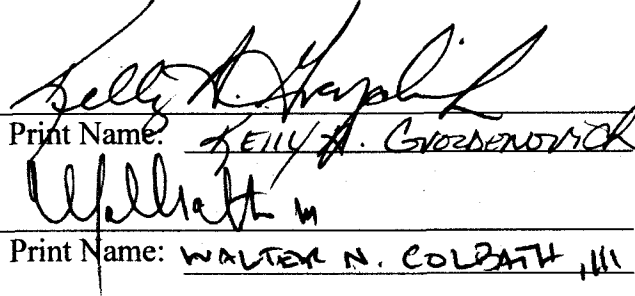 Kelly A.
Print Name: KELLY A. GVOZDENOVICH
Print Name: WALTER N. COLBATH, III